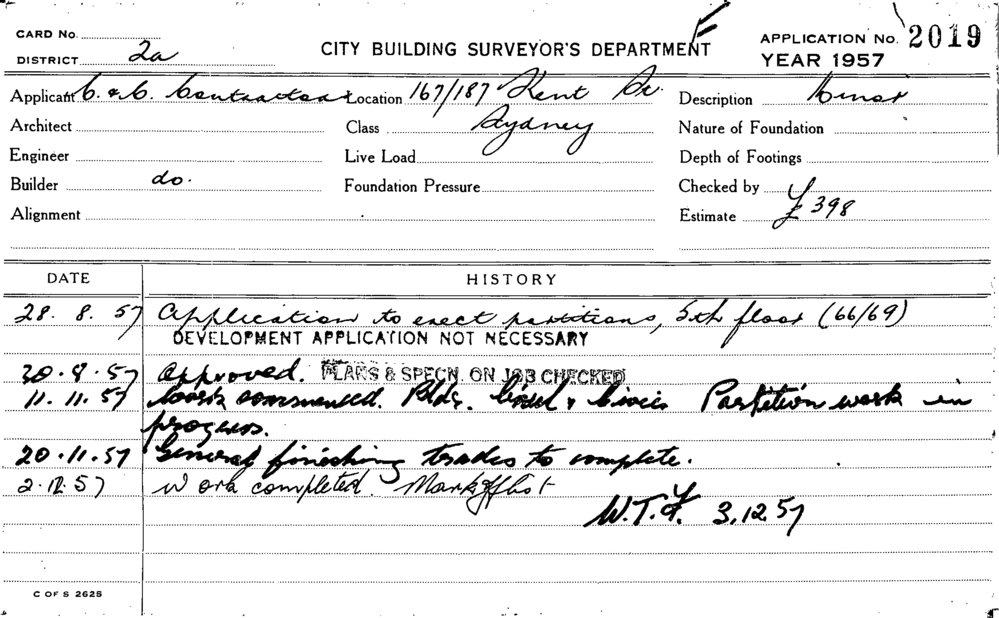 CARD No.
DISTRICT 2a
CITY BUILDING SURVEYOR'S DEPARTMENT
APPLICATION No. 2019
YEAR 1957
Applicant C. & C. Contractors Location 167/187 Kent St. Description Minor
Architect Class Sydney Nature of Foundation
Engineer Live Load Depth of Footings
Builder do. Foundation Pressure Checked by
Alignment Estimate £398
DATE HISTORY
28. 8. 57 Application to erect partitions, 5th floor (66/69)
DEVELOPMENT APPLICATION NOT NECESSARY
30.8.57 Approved. PLANS & SPECN. ON JOB CHECKED
11.11.57 Work commenced. Bldr. Partition work in
progress.
20.11.57 General finishing trades to complete.
2.12.57 Work completed. Mark off list
W.T.Y. 3.12.57
C OF S 2625